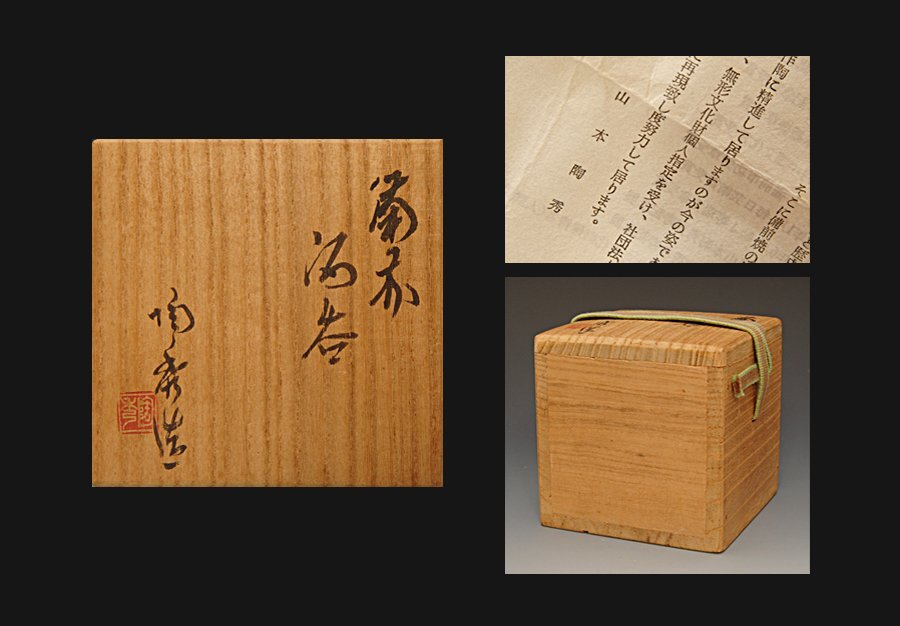 備前
酒呑
陶秀造
陶秀
と歴
そこに備前焼の
作陶に精進して居りますのが今の姿で
、無形文化財個人指定を受け、社団法
に再現致し度努力して居ります。
山本陶秀